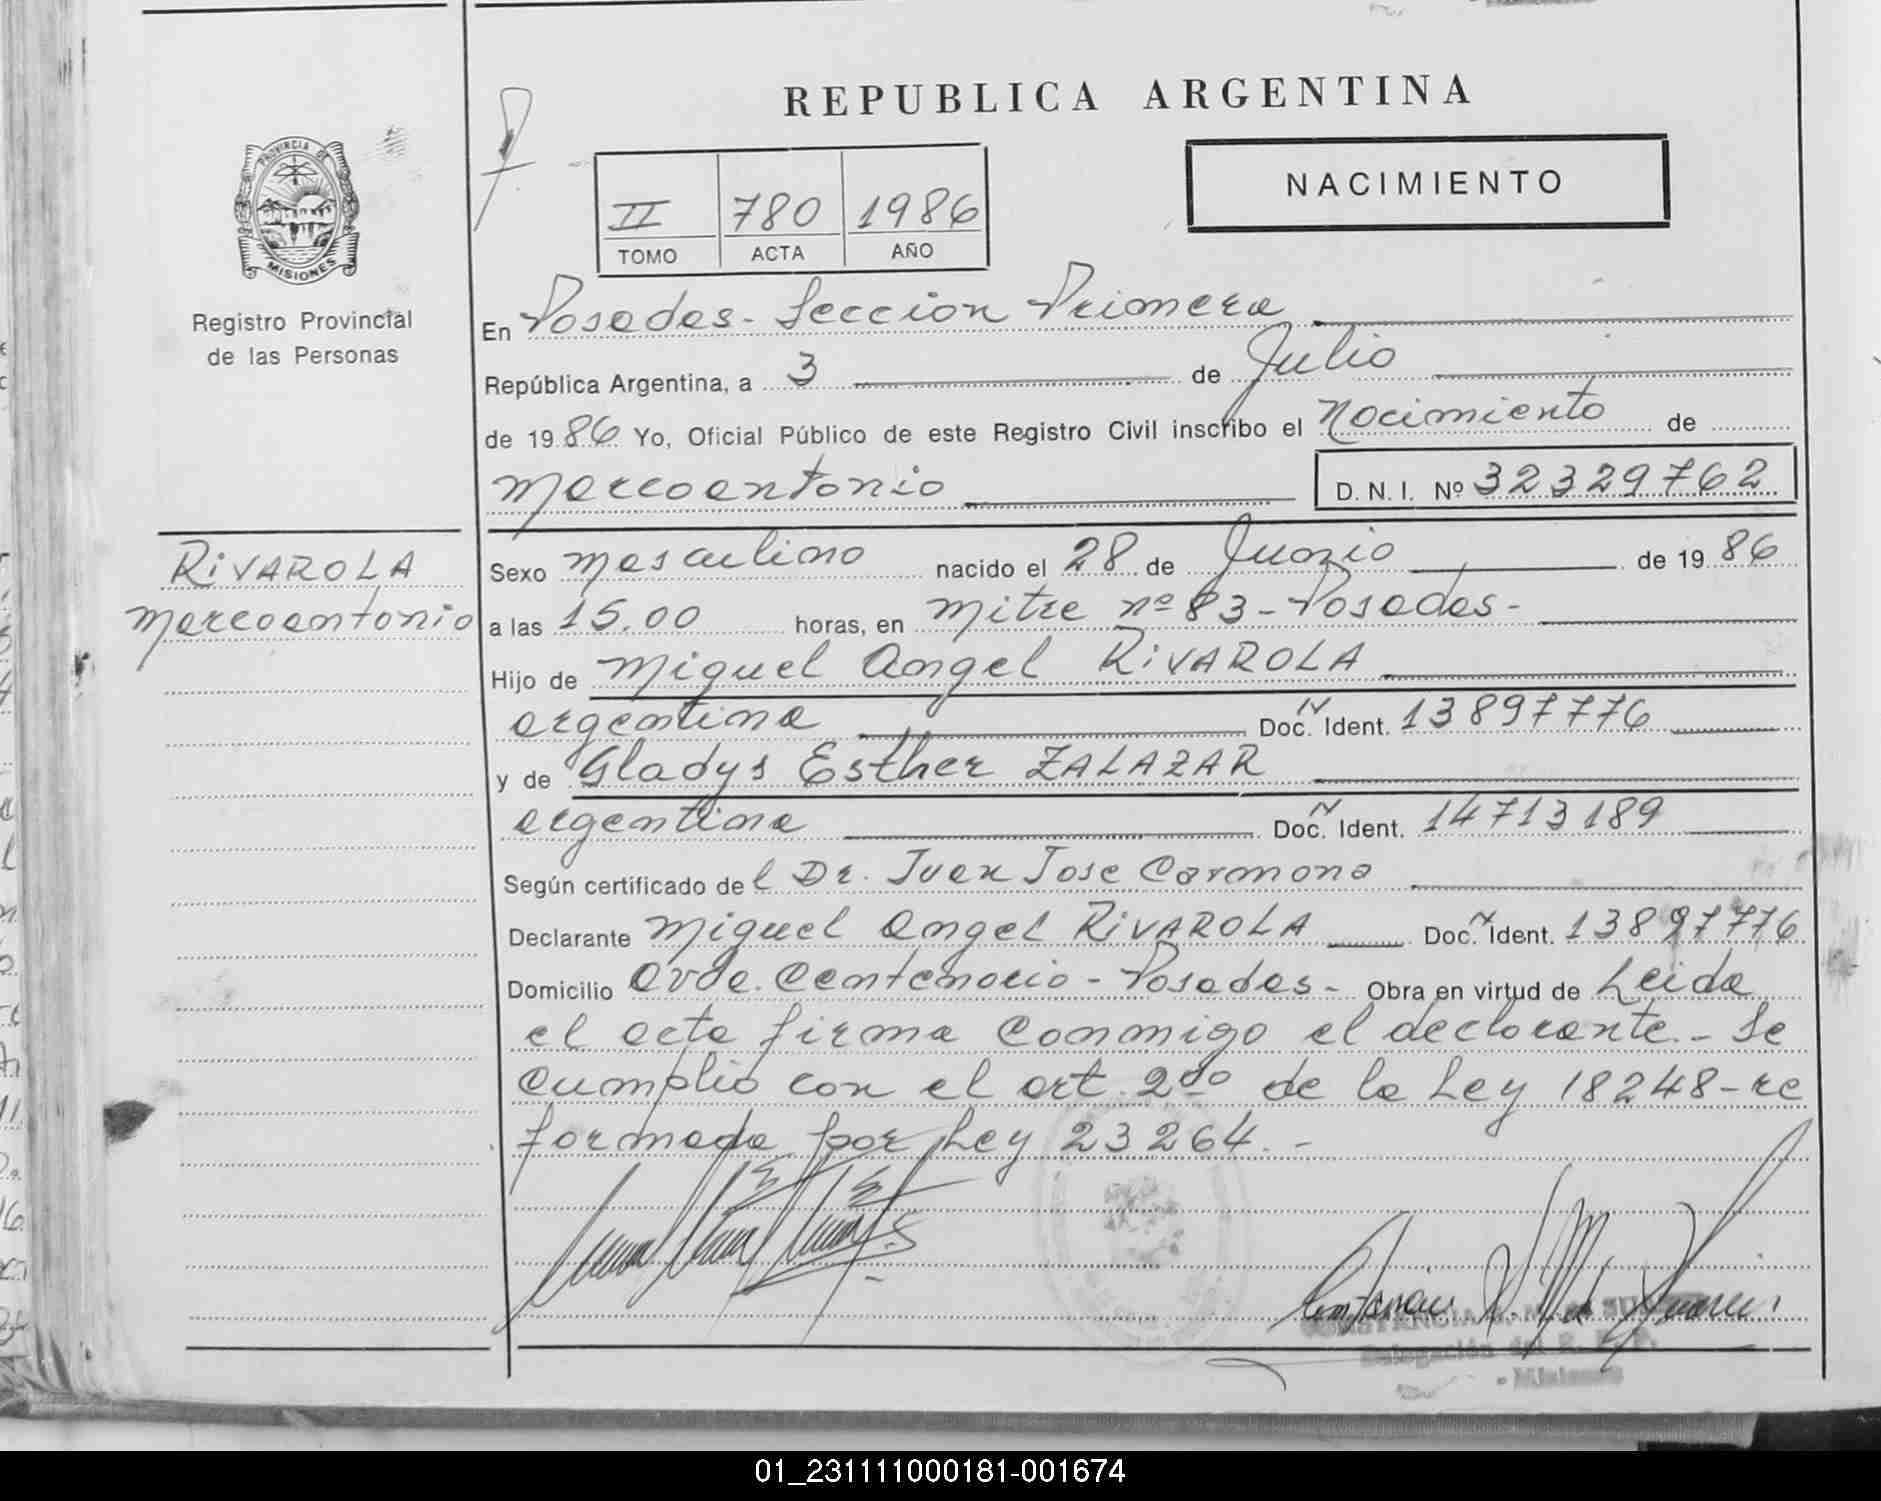 REPUBLICA ARGENTINA
NACIMIENTO
PROVINCIA DE
MISIONES
Registro Provincial
de las Personas
II 780 1986
TOMO ACTA AÑO
En Posadas - Sección Primera
República Argentina, a 3 de Julio
de 1986 Yo, Oficial Público de este Registro Civil inscribo el Nacimiento de
Marcoantonio D.N.I. Nº 32329762
RIVAROLA
Marcoantonio
Sexo masculino nacido el 28 de Junio de 1986
a las 15.00 horas, en Mitre nº 83 - Posadas -
Hijo de Miguel Angel RIVAROLA
argentina Doc. N Ident. 13897776
y de Gladys Esther ZALAZAR
argentina Doc. N Ident. 14713189
Según certificado del Dr. Juan Jose Carmona
Declarante Miguel Angel RIVAROLA Doc. N Ident. 13897776
Domicilio Avda. Centenario - Posadas - Obra en virtud de Leida
el acta firma conmigo el declarante. - Se
cumplio con el art. 2do de la Ley 18248 - re
formada por Ley 23264. -
01_231111000181-001674